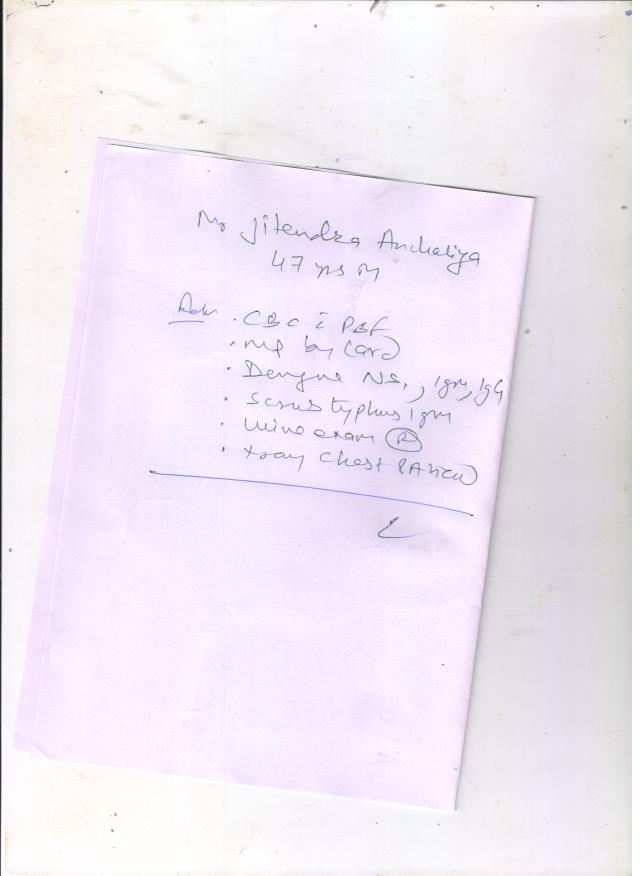 Mr Jitendra Anchaliya
47 yrs M
Adv. . CBC c̄ PBF
. MP by Card
. Dengue NS1, IgM, IgG
. Scrub typhus IgM
. Urine exam (R)
. X ray Chest PA view